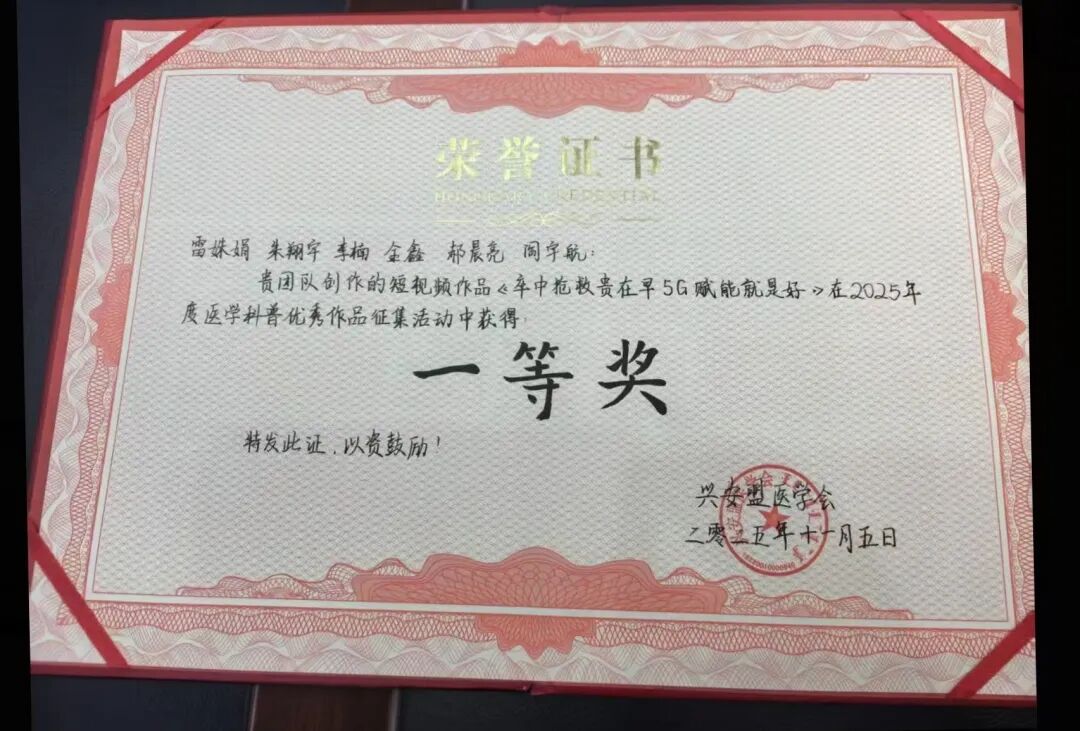 荣誉证书
HONORARY CREDENTIAL
雷姝娟 朱翔宇 李楠 金鑫 郝晨亮 阎宇航：
贵团队创作的短视频作品《卒中抢救贵在早5G赋能就是好》在2025年
度医学科普优秀作品征集活动中获得：
一等奖
特发此证，以资鼓励！
兴安盟医学会
二零二五年十一月五日